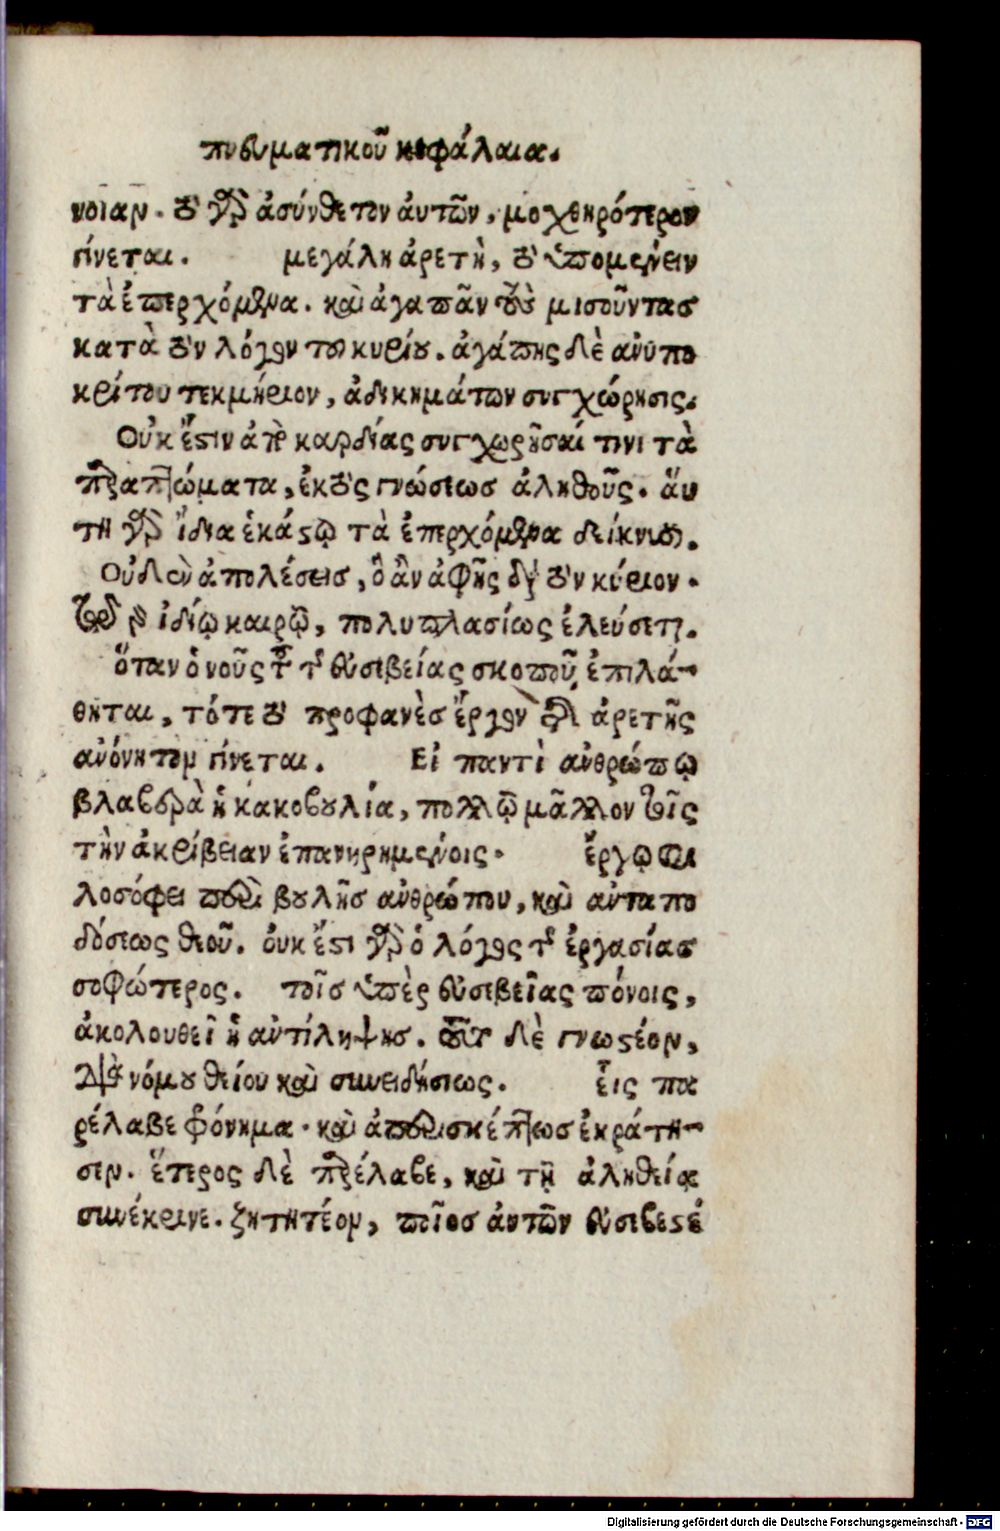 πνευματικοῦ κεφάλαια.
νοιαν. τὸ γὰρ ἀσύνθετον ἀυτῶν, μοχθηρότερον
γίνεται. μεγάλη ἀρετὴ, τὸ ὑπομένειν
τὰ ἐπερχόμενα. καὶ ἀγαπᾶν τοὺς μισοῦντας
κατὰ τὸν λόγον τοῦ κυρίου. ἀγάπης δὲ ἀνυπο
κρίτου τεκμήριον, ἀδικημάτων συγχώρησις.
Οὐκ ἔστιν ἀπὸ καρδίας συγχωρῆσαί τινι τὰ
παραπτώματα, ἐκτὸς γνώσεως ἀληθοῦς. ἅυ
τη γὰρ ἴδια ἑκάστῳ τὰ ἐπερχόμενα δείκνυσι.
Οὐδὲν ἀπολέσεις, ὃ ἂν ἀφῇς διὰ τὸν κύριον.
ἰδίῳ καιρῷ, πολυπλασίως ἐλεύσεται.
ὅταν ὁ νοῦς τὸν τῆς εὐσεβείας σκοποῦ ἐπιλά-
θηται, τότε τὸ προφανὲς ἔργον τῆς ἀρετῆς
ἀνόνητον γίνεται. Εἰ παντὶ ἀνθρώπῳ
βλαβερὰ ἡ κακοβουλία, πολλῷ μᾶλλον τοῖς
τὴν ἀκρίβειαν ἐπανῃρημένοις. ἔργῳ φι
λοσόφει περὶ βουλῆς ἀνθρώπου, καὶ ἀνταπο
δόσεως θεοῦ. ὀυκ ἔστι γὰρ ὁ λόγος τῆς ἐργασίας
σοφώτερος. τοῖς ὑπὲρ εὐσεβείας πόνοις,
ἀκολουθεῖ ἡ ἀντίληψης. τοῦτο δὲ γνωστέον,
διὰ νόμου θείου καὶ συνειδήσεως. ἷεις πα
ρέλαβε φρόνημα. καὶ ἀπερισκέπτως ἐκράτη-
σεν. ἕτερος δὲ παρέλαβε, καὶ τῇ ἀληθείᾳ
συνέκρινε. ζητητέον, ποῖος ἀυτῶν εὐσεβεστέ
Digitalisierung gefördert durch die Deutsche Forschungsgemeinschaft - DFG